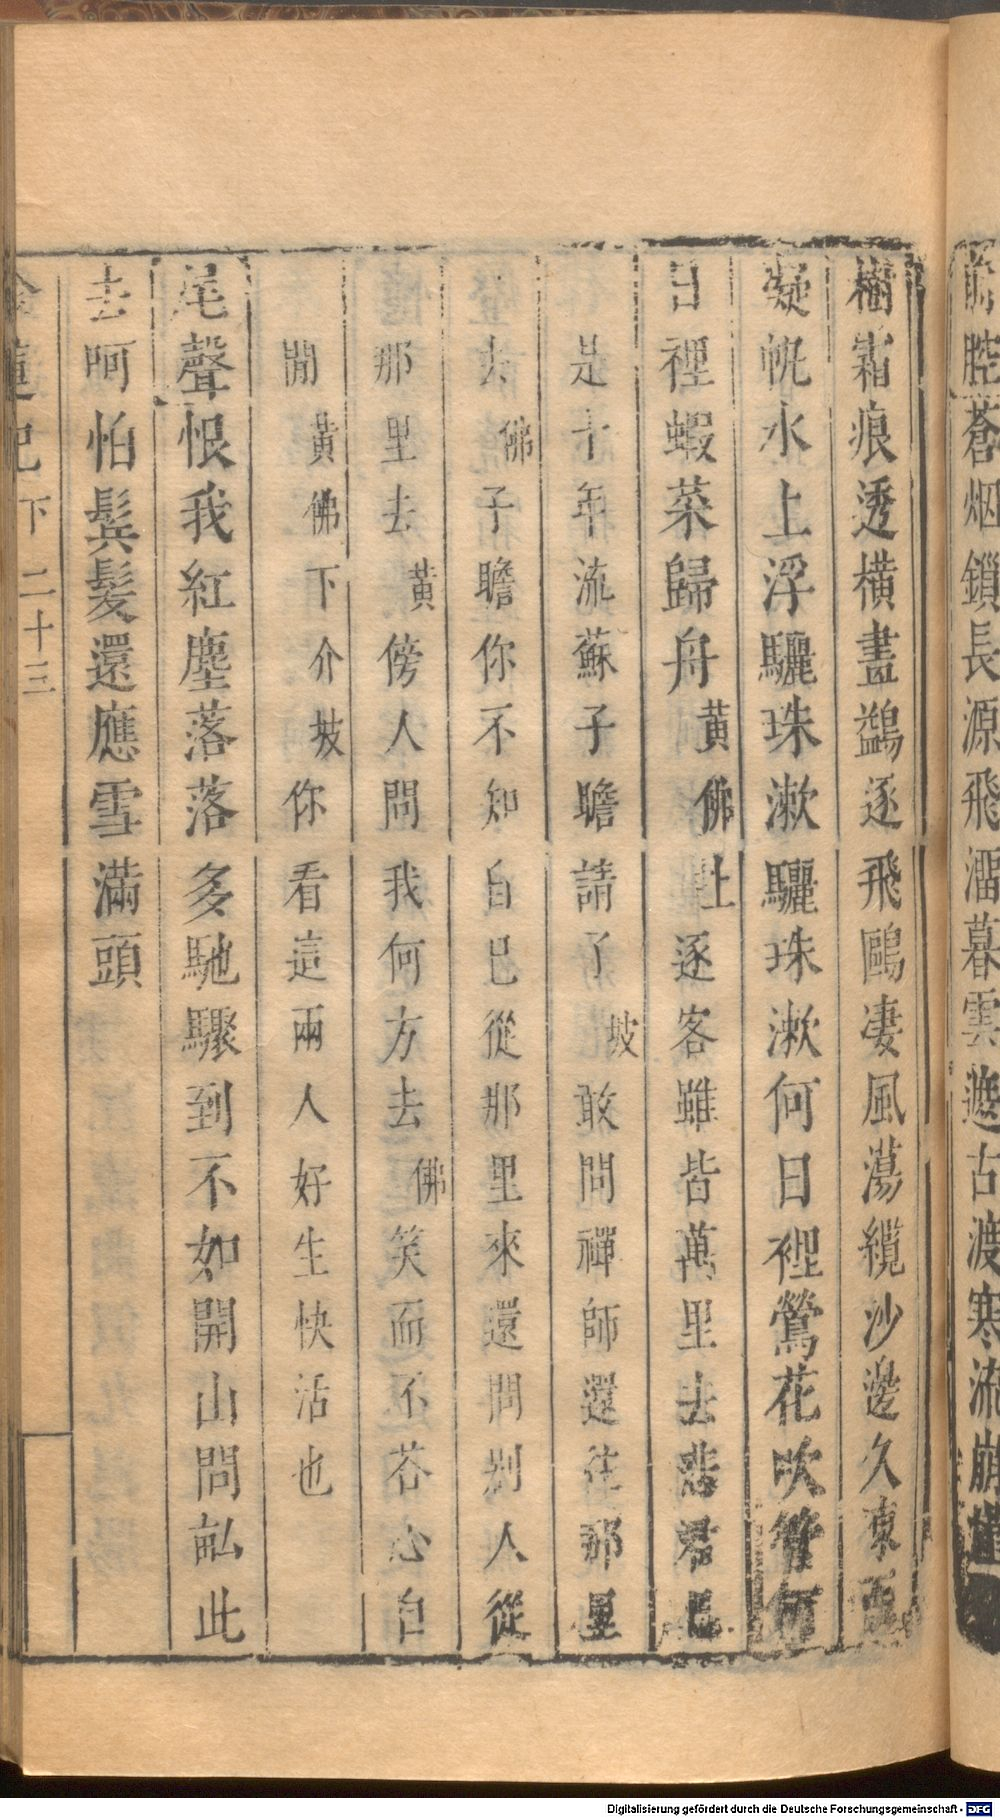 前腔蒼烟鎖長源飛溜暮雲遮古渡寒流崩
樹霜痕透橫畫鷁逐飛鷗凄風蕩纜沙邊久東西
凝帆水上浮驪珠漱驪珠漱何日裡鶯花吹管何
日裡蝦菜歸舟黃佛上逐客雖皆萬里去悲君已
是十年流蘇子瞻請了坡敢問禪師還往那里
去佛子瞻你不知自己從那里來還問別人從
那里去黃傍人問我何方去佛笑而不荅心自
閒黃佛下介坡你看這兩人好生快活也
尾聲恨我紅塵落落多馳驟到不如開山問畆此
去阿怕鬂髮還應雪滿頭
金蓮記下 二十三
Digitalisierung gefördert durch die Deutsche Forschungsgemeinschaft - DFG